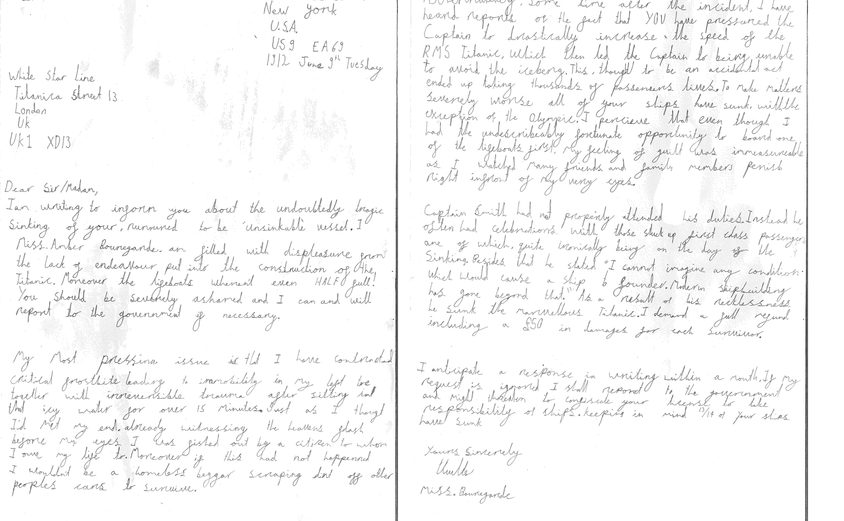 New York
USA
US9 EA69
1912 June 9th Tuesday
White Star Line
Titanica Street 13
London
UK
UK1 XD13
Dear Sir/Madan,
I an writing to inform you about the undoubtedly tragic
Sinking of your, rumoured to be 'unsinkable vessel. I
Miss. Amber Bouregarde. an filled with displeasure from
the lack of endeavour put into the construction of the,
Titanic. Moreover the lifeboats wherent even HALF full!
You should be severely ashamed and I can and will
report to the government if necessary.
My most pressing issue is that I have contracted
critical frostbite leading to immobility in my left
together with irreversible trauma after sitting in
that icy water for over 15 minutes. Just as I thougt
I'd met my end, already witnessing the heavens flash
before my eyes I was fished out by a citizen to whom
I owe my life to. Moreover if this had not happened
I wouldnt be a homeless beggar scraping dirt off other
peoples cars to survive.
Some time after the incident, I have
heard reports of the fact that YOU have pressured the
Captain to drastically increase the speed of the
RMS Titanic, Which then led the Captain to being unable
to avoid the iceberg. This, thought to be an accidental act
ended up taking thousands of passengers lives. To make matters
severely worse all of your ships have sunk. with the
exception of, the Olympic. I percieve that even though I
had the undescribeably fortunate opportunity to board one
of the lifeboats first, my feeling of guilt was immeasureable
as I watched many friends and family members perish
right infront of my very eyes.
Captain Smith had not properly attended his duties. Instead he
often had celebrations with those stuck up first class passengers
one of which, quite ironically being on the day of the
Sinking. Besides that he stated "I cannot imagine any condition
which would cause a ship to founder. Modern shipbuilding
has gone beyond that." As a result of his recklessness
he sunk the marvellous Titanic. I demand a full refund
including a £50 in damages for each survivor.
I anticipate a response in writing within a month. If my
request is ignored I shall report to the government
and might threaten to confiscate your license to take
responsibility of ships. keeping in mind of your ships
have sunk
Yours Sincerely
Miss. Bouregarde